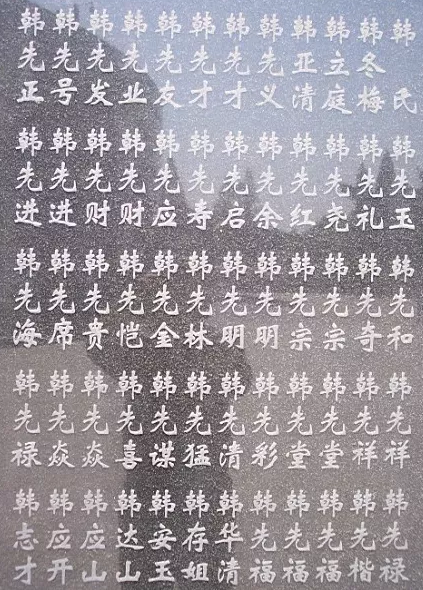 韩氏
韩冬梅
韩立庭
韩亚清
韩先义
韩先才
韩先才
韩先友
韩先业
韩先发
韩先号
韩先正
韩先玉
韩先礼
韩先尧
韩先红
韩先余
韩先启
韩先寿
韩先应
韩先财
韩先财
韩先进
韩先进
韩先和
韩先奇
韩先宗
韩先宗
韩先明
韩先明
韩先林
韩先金
韩先恺
韩先贵
韩先席
韩先海
韩先祥
韩先祥
韩先堂
韩先堂
韩先彩
韩先清
韩先猛
韩先谋
韩先喜
韩先焱
韩先焱
韩先禄
韩先禄
韩先楷
韩先福
韩先福
韩先福
韩华清
韩存姐
韩安玉
韩达山
韩应山
韩应开
韩志才